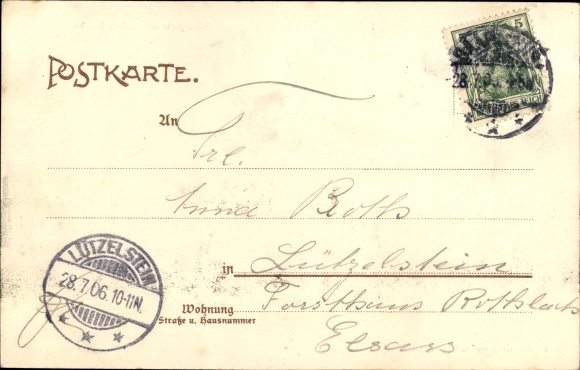 POSTKARTE.
5
28.7.06
REICH
An
Frl.
Anna Roths
in Lützelstein
Wohnung Forsthaus Rothlach
Straße u. Hausnummer
Elsass
LÜTZELSTEIN
28.7.06.10-11N.